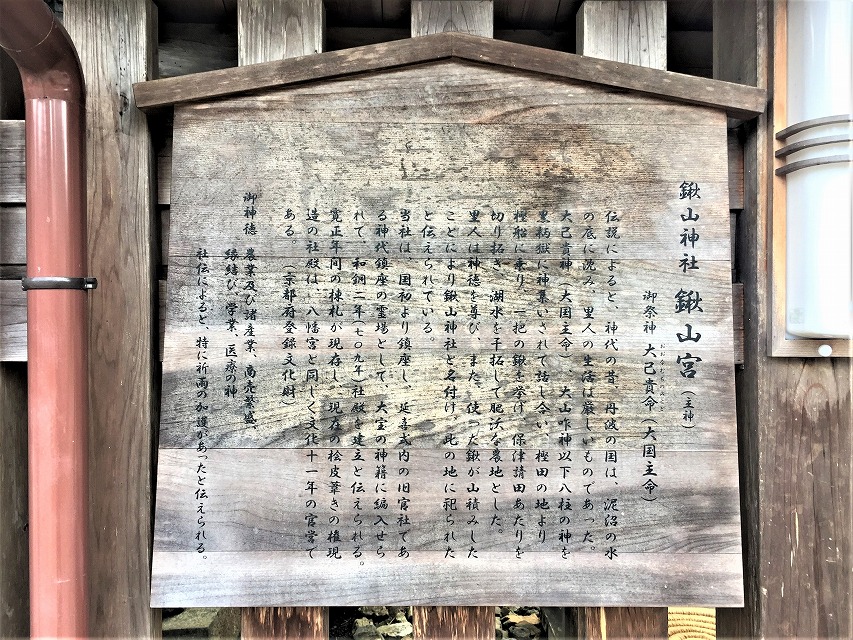 鍬山神社 鍬山宮（主神）
御祭神 大己貴命（大国主命）
おおなむちのみこと
伝説によると、神代の昔、丹波の国は、泥沼の水
の底に沈み、里人の生活は厳しいものであった。
大己貴神（大国主命）、大山咋神以下八柱の神を
黒柄嶽に神集いされて話し合い、樫田の地より
樫船に乗り、一把の鍬を挙げ、保津請田あたりを
切り拓き、湖水を干拓して肥沃な農地とした。
里人は神徳を尊び、また、使った鍬が山積みした
ことにより鍬山神社と名付け、此の地に祀られた
と伝えられている。
当社は、国初より鎮座し、延喜式内の旧官社であ
る神代鎮座の霊場として、大宝の神籍に編入せら
れて、和銅二年（七〇九年）社殿を建立と伝えられる。
寛正年間の棟札が現存し、現在の桧皮葺きの権現
造の社殿は、八幡宮と同じく文化十一年の官営で
ある。（京都府登録文化財）
御神徳 農業及び諸産業、商売繁盛、
縁結び、学業、医療の神
社伝によると、特に祈雨の加護があったと伝えられる。